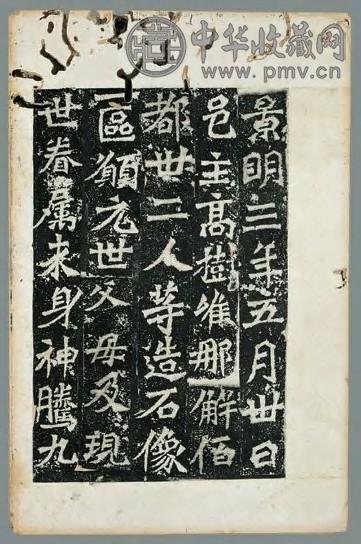 中华收藏网
www.pmv.cn
景明三年五月卅日
邑主高樹維那解佰
都卅二人等造石像
區願元世父母及現
世眷属来身神騰九